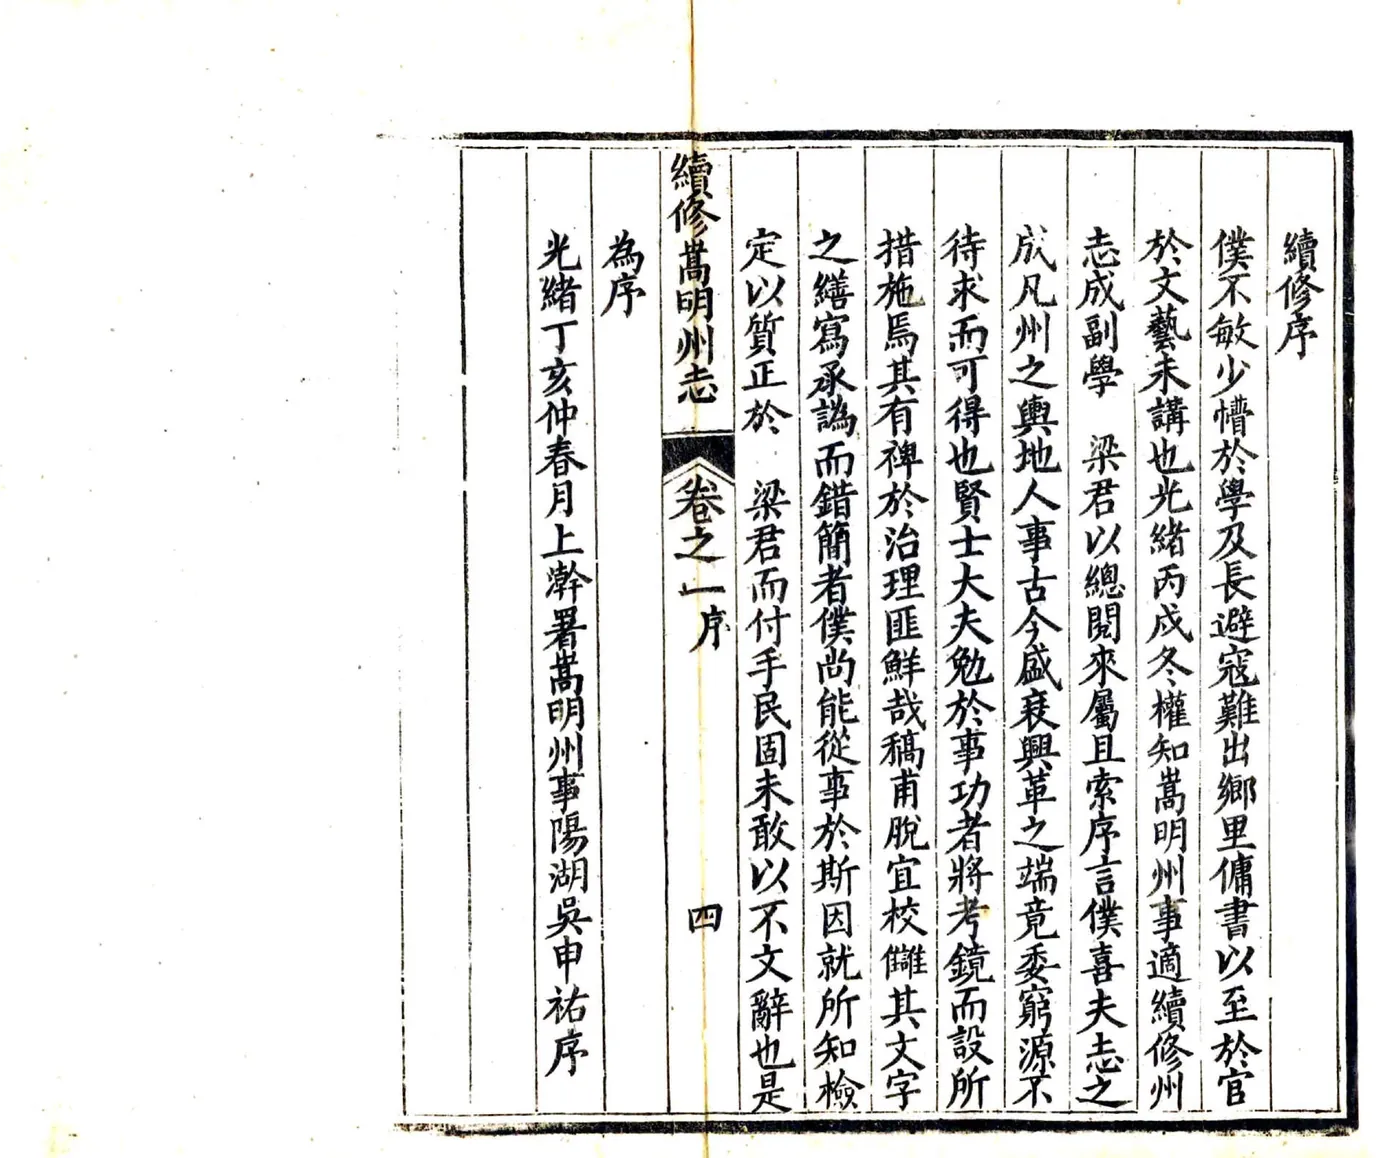 續修序
僕不敏少懵於學及長避寇難出鄉里傭書以至於官
於文藝未講也光緒丙戍冬權知嵩明州事適續修州
志成副學　梁君以總閱來屬且索序言僕喜夫志之
成凡州之輿地人事古今盛衰興革之端竟委窮源不
待求而可得也賢士大夫勉於事功者將考鏡而設所
措施焉其有禆於治理匪鮮哉稿甫脫宜校讎其文字
之繕寫承譌而錯簡者僕尚能從事於斯因就所知檢
定以質正於　梁君而付手民固未敢以不文辭也是
續修嵩明州志　卷之一 序　四
為序
光緒丁亥仲春月上澣署嵩明州事陽湖吳申祐序